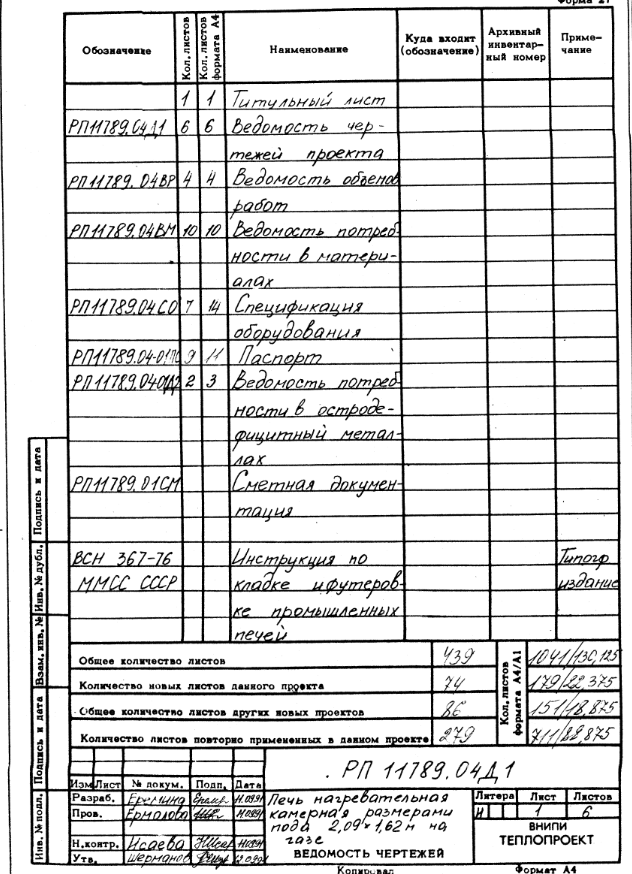 Форма 27
Обозначение Кол. листов Кол. листов формата А4 Наименование Куда входит (обозначение) Архивный инвентарный номер Примечание
1 1 Титульный лист
РП11789.04Д1 6 6 Ведомость чер-
тежей проекта
РП11789.04ВР 4 4 Ведомость объемов
работ
РП11789.04ВМ 10 10 Ведомость потреб-
ности в матери-
алах
РП11789.04СО 7 14 Спецификация
оборудования
РП11789.04-01ПС 9 11 Паспорт
РП11789.04-01Д2 2 3 Ведомость потреб
ности в остроде-
фицитный метал-
лах
РП11789.01СМ Сметная докумен-
тация
ВСН 367-76 Инструкция по Типогр
ММСС СССР кладке и футеров-
издание
ке промышленных
печей
Общее количество листов 439
Количество новых листов данного проекта 74
Общее количество листов других новых проектов 86
Количество листов повторно примененных в данном проекте 279
Кол. листов формата А4/А1
1041/130,125
179/22,375
711/88,875
РП 11789.04Д1
Изм Лист № докум. Подп. Дата
Разраб. Еремина
Пров. Ермолова
Н.контр. Исаева
Утв. Шерманов
Печь нагревательная
камерная размерами
пода 2,09×1,62 м на
газе
ВЕДОМОСТЬ ЧЕРТЕЖЕЙ
Литера Лист Листов
И 1 6
ВНИПИ
ТЕПЛОПРОЕКТ
Копировал Формат А4
Инв. № подл. Подпись и дата Взам. инв. № Инв. № дубл. Подпись и дата